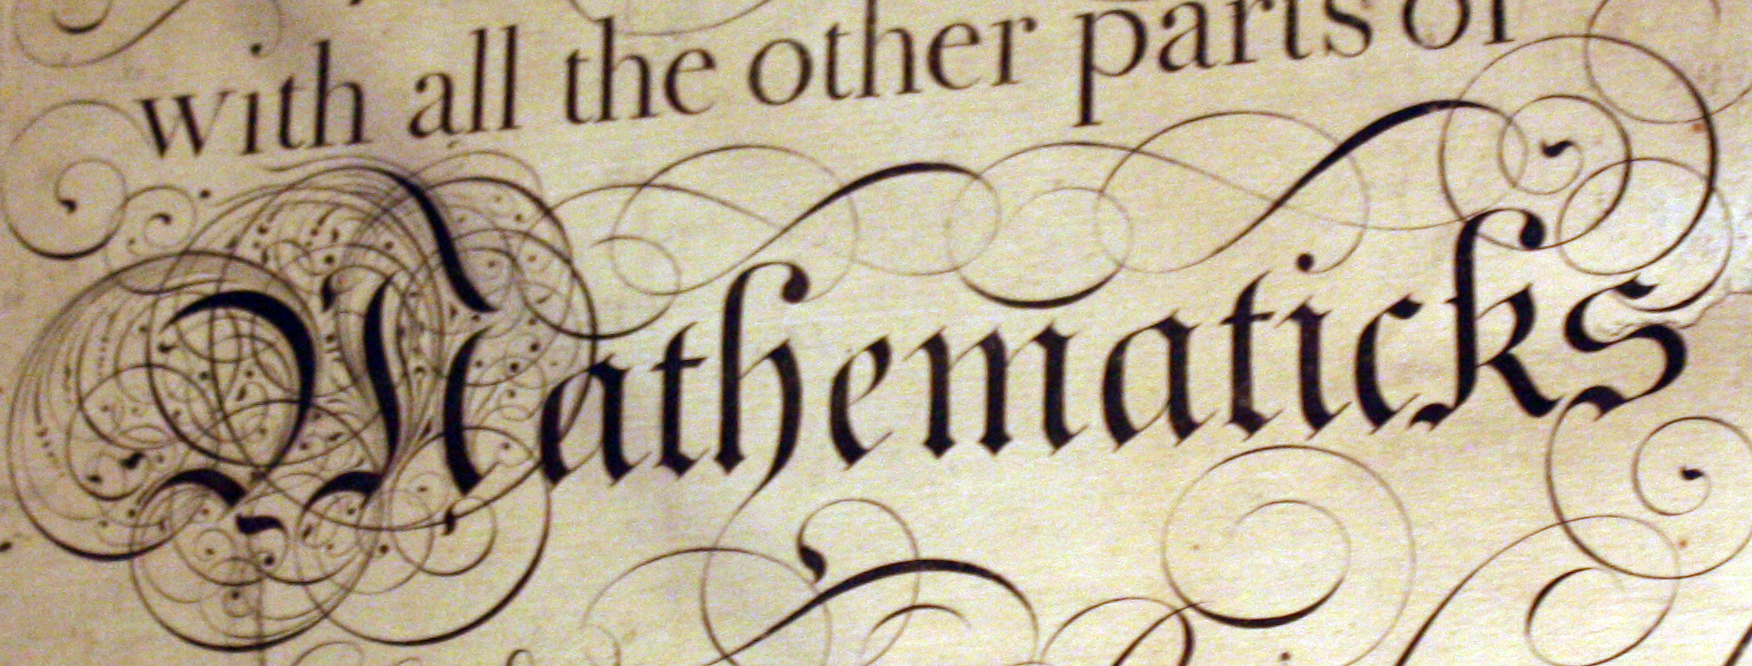 with all the other parts of
Mathematicks